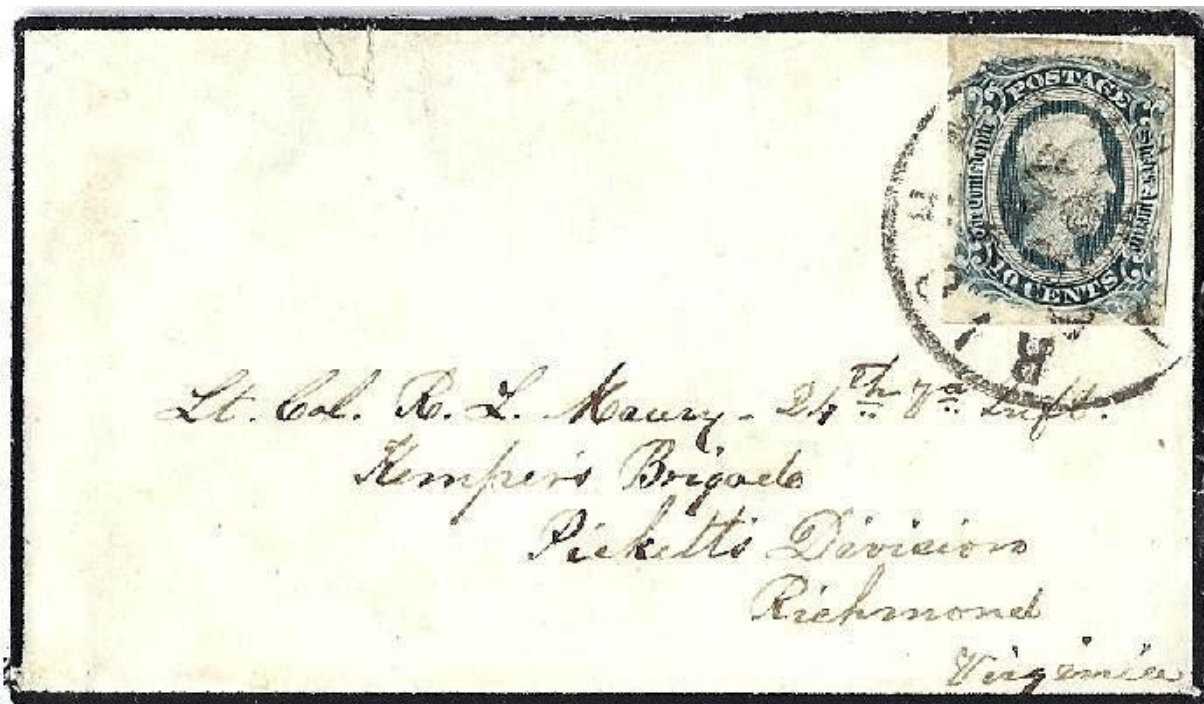 POSTAGE
The Confederate States of America
10 CENTS
RICH
Lt. Col. R. L. Maury - 24th Va Inft.
Kemper's Brigade
Pickett's Division
Richmond
Virginia